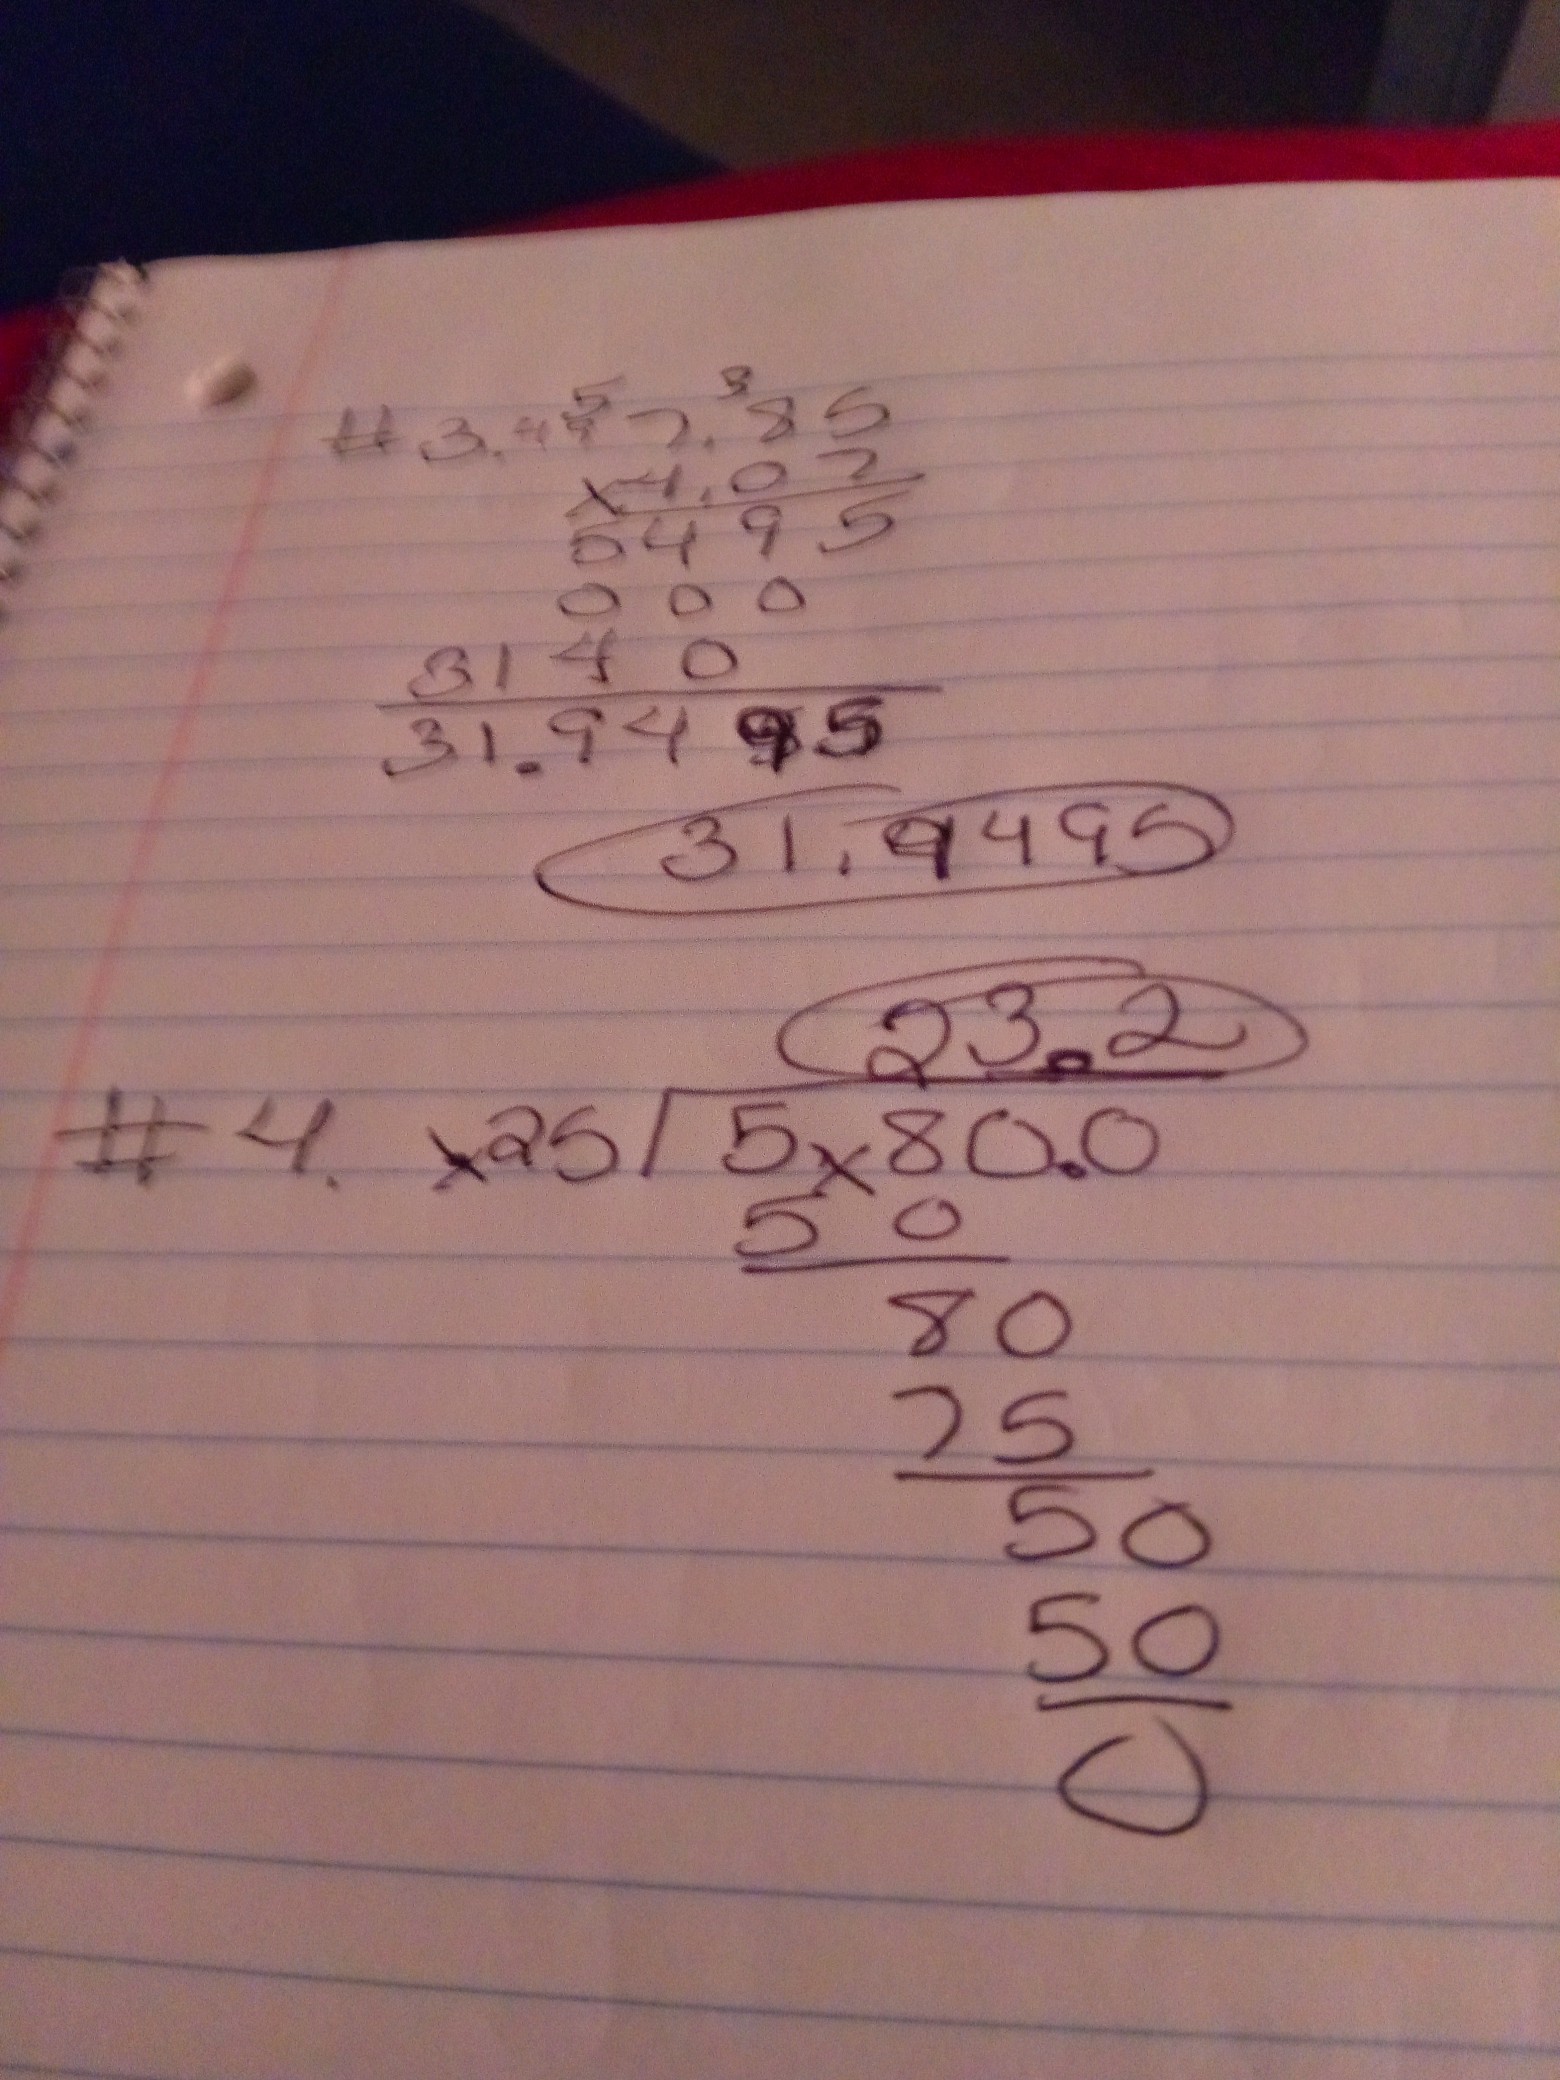 5 3
#3. 4 9 7.85
x4.07
5495
000
3140
31.9495
31.9495
23.2
#4. x25/5x80.0
50
80
75
50
50
0